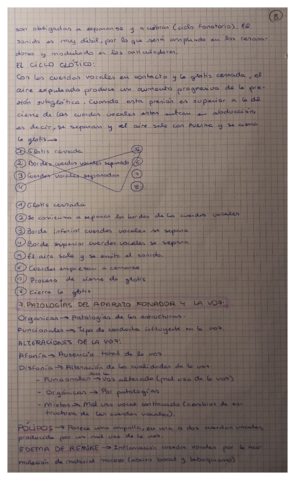 8
son obligadas a separarse y a vibrar (ciclo fonatorio). El
sonido es muy débil, por lo que será ampliado en los resona-
dores y modulado en los articuladores.
EL CICLO GLÓTICO:
Con las cuerdas vocales en contacto y la glotis cerrada, el
aire expulsado produce un aumento progresivo de la pre-
sión subglótica. Cuando esta presión es superior a la de
cierre de las cuerdas vocales estas entran en abducción
es decir, se separan y el aire sale con fuerza y se cierra
la glotis
① Glotis cerrada
② Bordes cuerdas vocales separados ⑥
③ Cuerdas vocales separadas ⑦
④ ⑧
① Glotis cerrada
② Se comienza a separar los bordes de las cuerdas vocales
③ Borde inferior cuerdas vocales se separa
④ Borde superior cuerdas vocales se separa
⑤ El aire sale y se emite el sonido
⑥ Cuerdas empiezan a cerrarse
⑦ Proceso de cierre de glotis
⑧ Cierre la glotis
7. PATOLOGÍAS DEL APARATO FONADOR Y LA VOZ.
Orgánicas → Patologías de las estructuras.
Funcionales → Tipo de conducta
ALTERACIONES DE LA VOZ:
Afonía → Ausencia total de la voz
Disfonía → Alteración de las cualidades de la voz
- Funcionales → Voz alterada (mal uso de la voz)
- Orgánicas → Por patologías
- Mixtas → Mal uso vocal continuado (cambios de es-
tructura de las cuerdas vocales).
PÓLIPOS → Parece una ampolla, en una o dos cuerdas vocales,
producida por un mal uso de la voz.
EDEMA DE REINKE → Inflamación cuerdas vocales por la acu-
mulación de material mucoso (abuso vocal y tabaquismo)